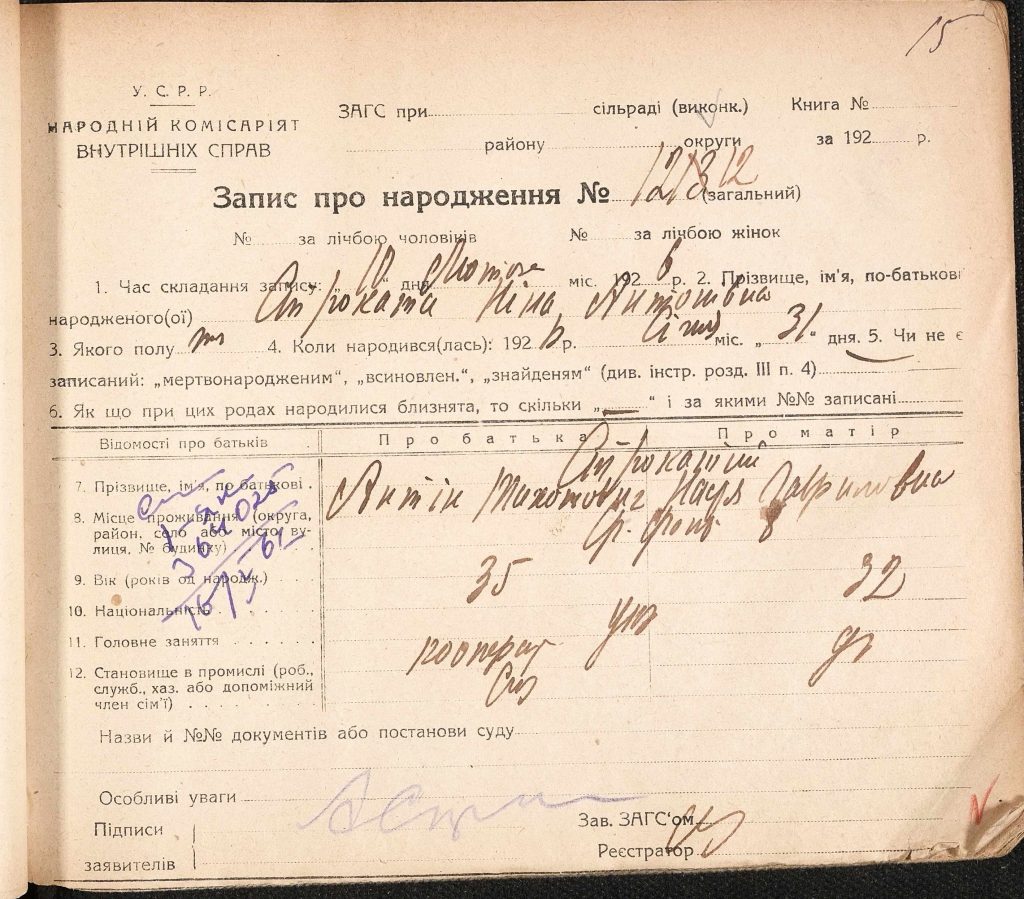 15
У. С. Р. Р.
НАРОДНІЙ КОМІСАРІЯТ
ВНУТРІШНІХ СПРАВ
ЗАГС при сільраді (виконк.) Книга №
району округи за 192 р.
Запис про народження № (загальний)
№ за лічбою чоловіків № за лічбою жінок
1. Час складання запису: „ 10 “ дня Лютого міс. 1926 р. 2. Прізвище, ім'я, по-батькові
народженого(ої) Строката Ніна Антонівна
3. Якого полу ж 4. Коли народився(лась): 1926 р. Січня міс. „ 31 “ дня. 5. Чи не є
записаний: „мертвонародженим“, „всиновлен.“, „знайденям“ (див. інстр. розд. III п. 4)
6. Як що при цих родах народилися близнята, то скільки „ — “ і за якими №№ записані
Відомості про батьків Про батька Про матір
Строкатії
7. Прізвище, ім'я, по батькові Антін Гаврилівна
8. Місце проживання (округа,
район, село або місто ву-
лиця, № будинку)
9. Вік (років од народж.) 35 32
10. Національність укр
11. Головне заняття кооперат дг
12. Становище в промислі (роб.,
служб., хаз. або допоміжний
член сім'ї)
Назви й №№ документів або постанови суду
Особливі уваги
Підписи
заявителів
Зав. ЗАГС'ом
Реєстратор